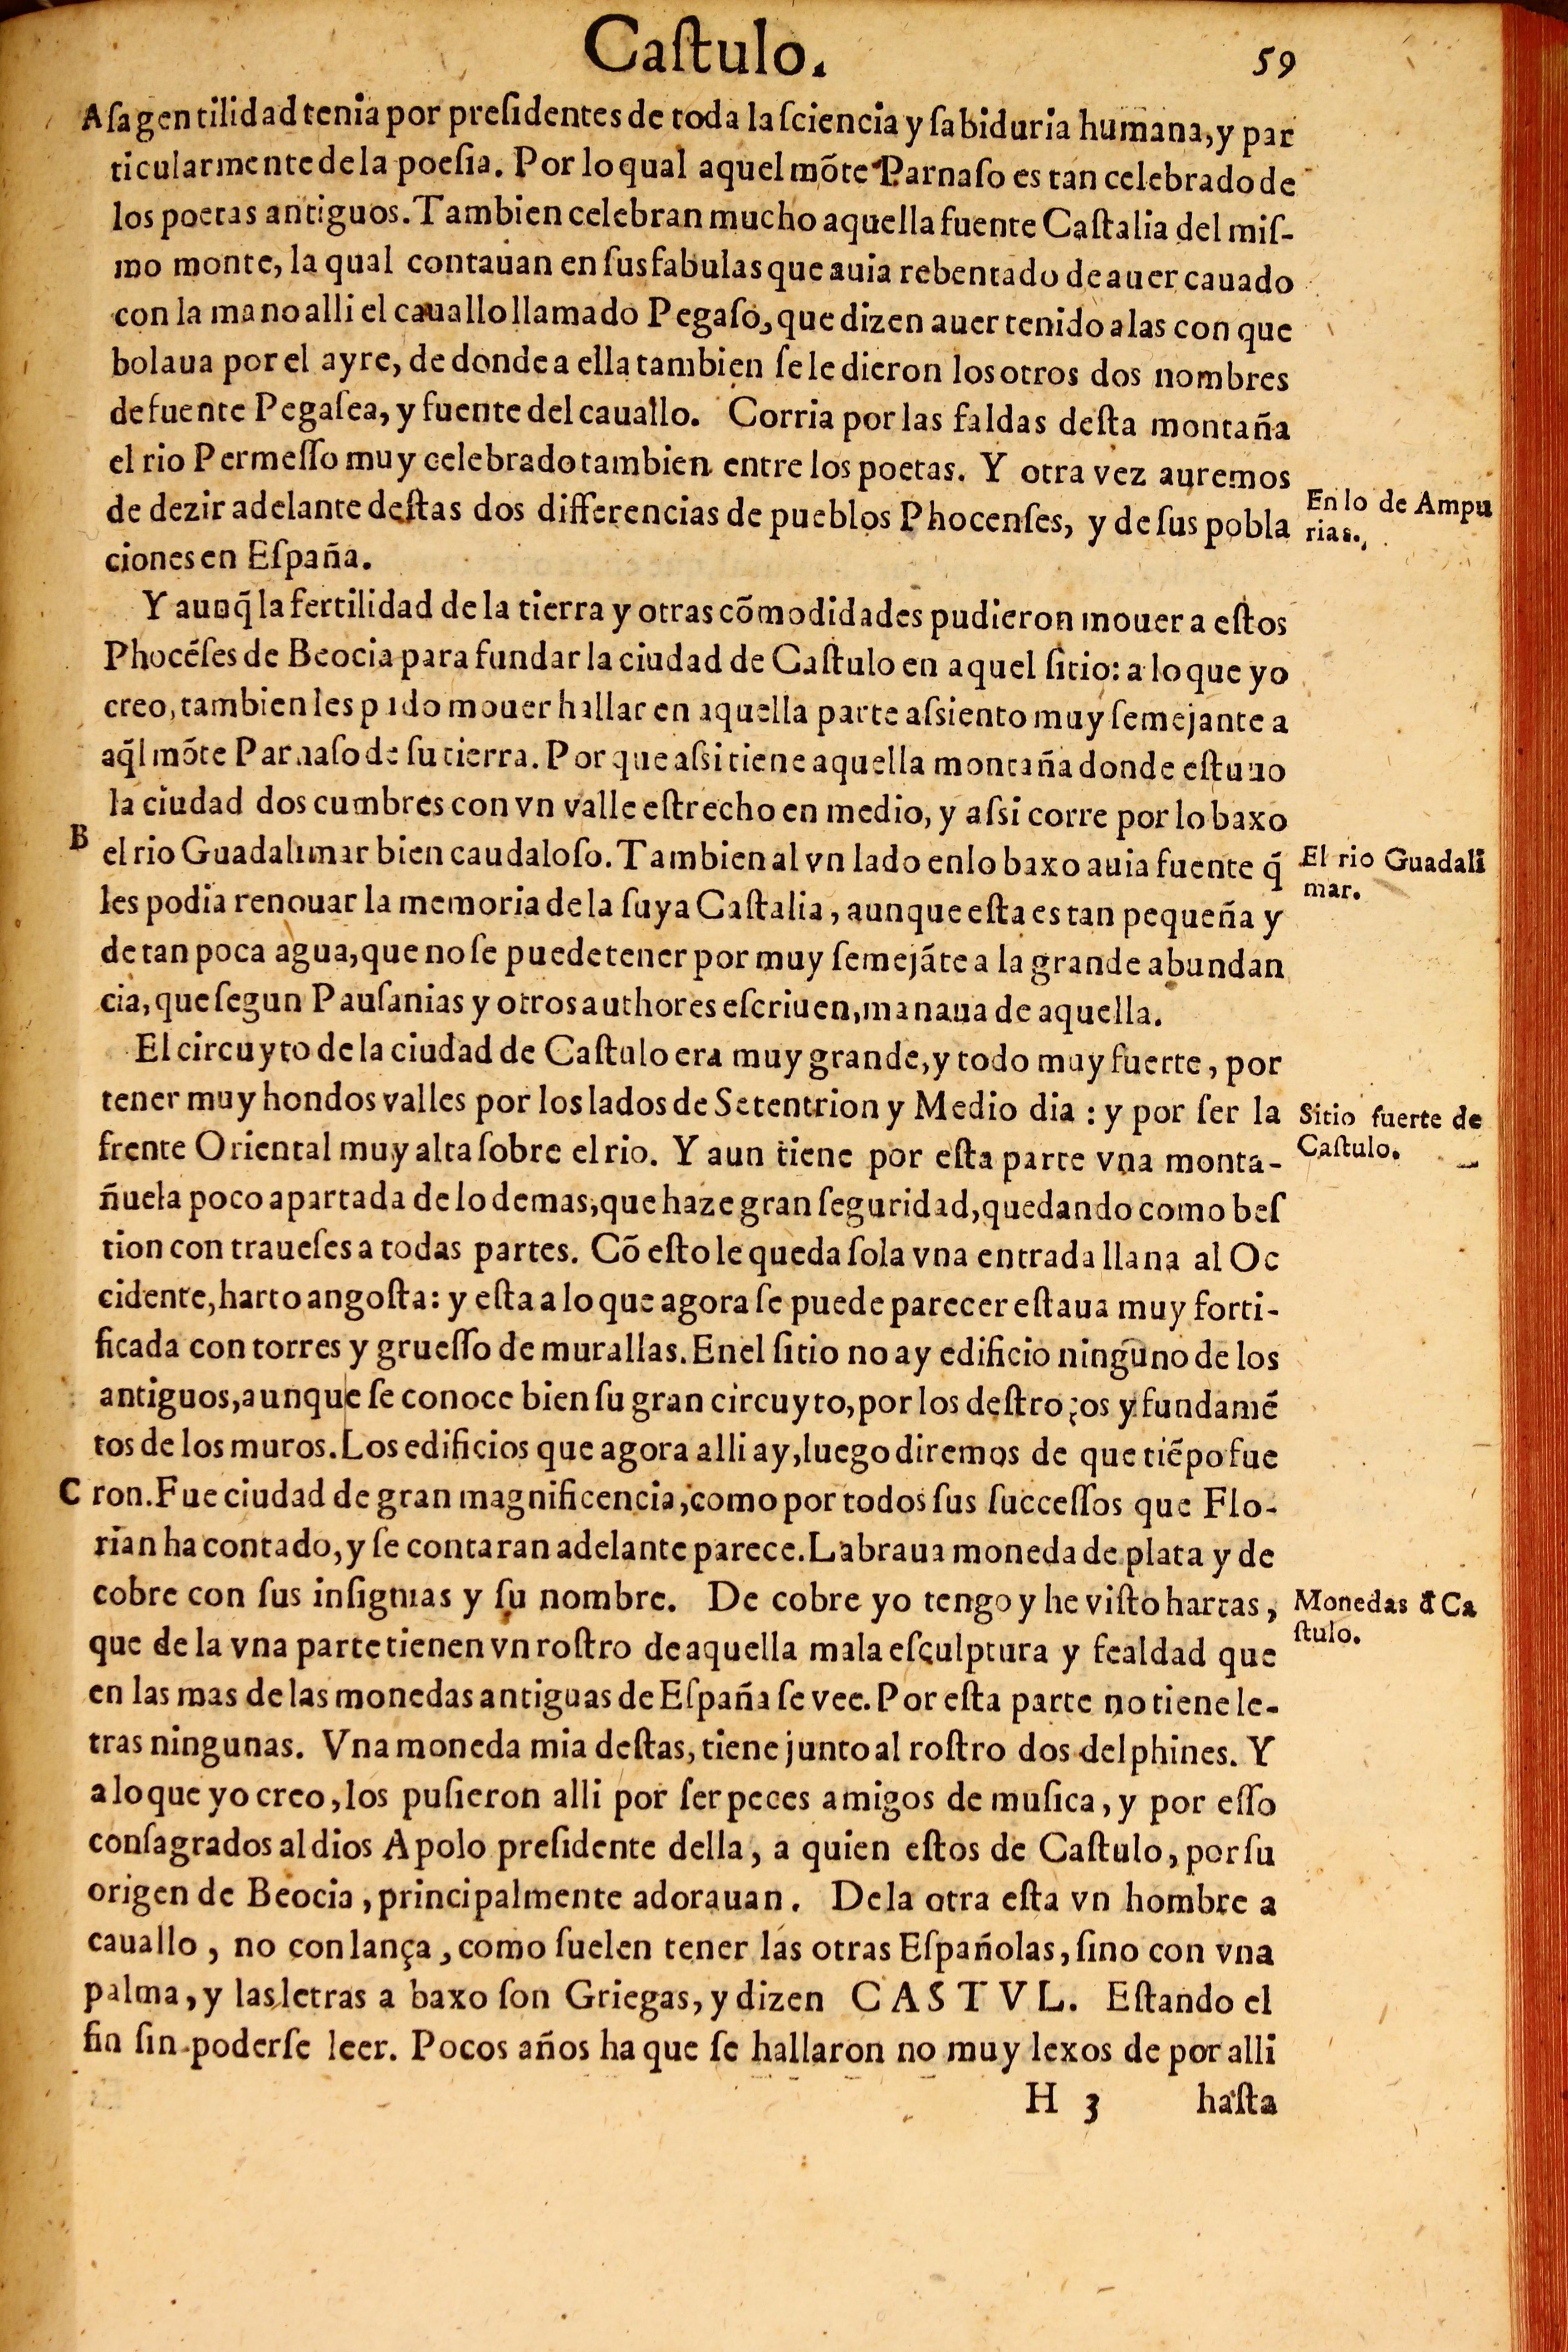 Caſtulo.
59
A ſa gentilidad tenia por preſidentes de toda la ſciencia y ſabiduria humana, y par
ticularmente de la poeſia. Por lo qual aquel mõte Parnaſo es tan celebrado de
los poetas antiguos. Tambien celebran mucho aquella fuente Caſtalia del miſ-
mo monte, la qual contauan en ſus fabulas que auia rebentado de auer cauado
con la mano alli el cauallo llamado Pegaſo, que dizen auer tenido alas con que
bolaua por el ayre, de donde a ella tambien ſe le dieron los otros dos nombres
de fuente Pegaſea, y fuente del cauallo. Corria por las faldas deſta montaña
el rio Permeſſo muy celebrado tambien entre los poetas. Y otra vez auremos
de dezir adelante deſtas dos differencias de pueblos Phocenſes, y de ſus pobla
ciones en Eſpaña.
En lo de Ampu
rias.
Y aunq̃ la fertilidad de la tierra y otras cõmodidades pudieron mouer a eſtos
Phocẽſes de Beocia para fundar la ciudad de Caſtulo en aquel ſitio: a lo que yo
creo, tambien les pudo mouer hallar en aquella parte aſsiento muy ſemejante a
aq̃l mõte Parnaſo de ſu tierra. Por que aſsi tiene aquella montaña donde eſtuuo
la ciudad dos cumbres con vn valle eſtrecho en medio, y aſsi corre por lo baxo
B el rio Guadalimar bien caudaloſo. Tambien al vn lado en lo baxo auia fuente q̃
les podia renouar la memoria de la ſuya Caſtalia, aunque eſta es tan pequeña y
de tan poca agua, que no ſe puede tener por muy ſemejãte a la grande abundan
cia, que ſegun Pauſanias y otros authores eſcriuen, manaua de aquella.
El rio Guadali
mar.
El circuyto de la ciudad de Caſtulo era muy grande, y todo muy fuerte, por
tener muy hondos valles por los lados de Setentrion y Medio dia : y por ſer la
frente Oriental muy alta ſobre el rio. Y aun tiene por eſta parte vna monta-
ñuela poco apartada de lo demas, que haze gran ſeguridad, quedando como beſ
tion con traueſes a todas partes. Cõ eſto le queda ſola vna entrada llana al Oc
cidente, harto angoſta: y eſta a lo que agora ſe puede parecer eſtaua muy forti-
ficada con torres y grueſſo de murallas. En el ſitio no ay edificio ninguno de los
antiguos, aunque ſe conoce bien ſu gran circuyto, por los deſtroços y fundamẽ
tos de los muros. Los edificios que agora alli ay, luego diremos de que tiẽpo fue
C ron. Fue ciudad de gran magnificencia, como por todos ſus ſucceſſos que Flo-
rian ha contado, y ſe contaran adelante parece. Labraua moneda de plata y de
cobre con ſus inſignias y ſu nombre. De cobre yo tengo y he viſto hartas,
que de la vna parte tienen vn roſtro de aquella mala eſculptura y fealdad que
en las mas de las monedas antiguas de Eſpaña ſe vee. Por eſta parte no tiene le-
tras ningunas. Vna moneda mia deſtas, tiene junto al roſtro dos delphines. Y
a lo que yo creo, los puſieron alli por ſer peces amigos de muſica, y por eſſo
conſagrados al dios Apolo preſidente della, a quien eſtos de Caſtulo, por ſu
origen de Beocia, principalmente adorauan. De la otra eſta vn hombre a
cauallo, no con lança, como ſuelen tener las otras Eſpañolas, ſino con vna
palma, y las letras a baxo ſon Griegas, y dizen CASTVL. Eſtando el
fin ſin poderſe leer. Pocos años ha que ſe hallaron no muy lexos de por alli
Sitio fuerte de
Caſtulo.
Monedas đ Ca
ſtulo.
H 3 haſta